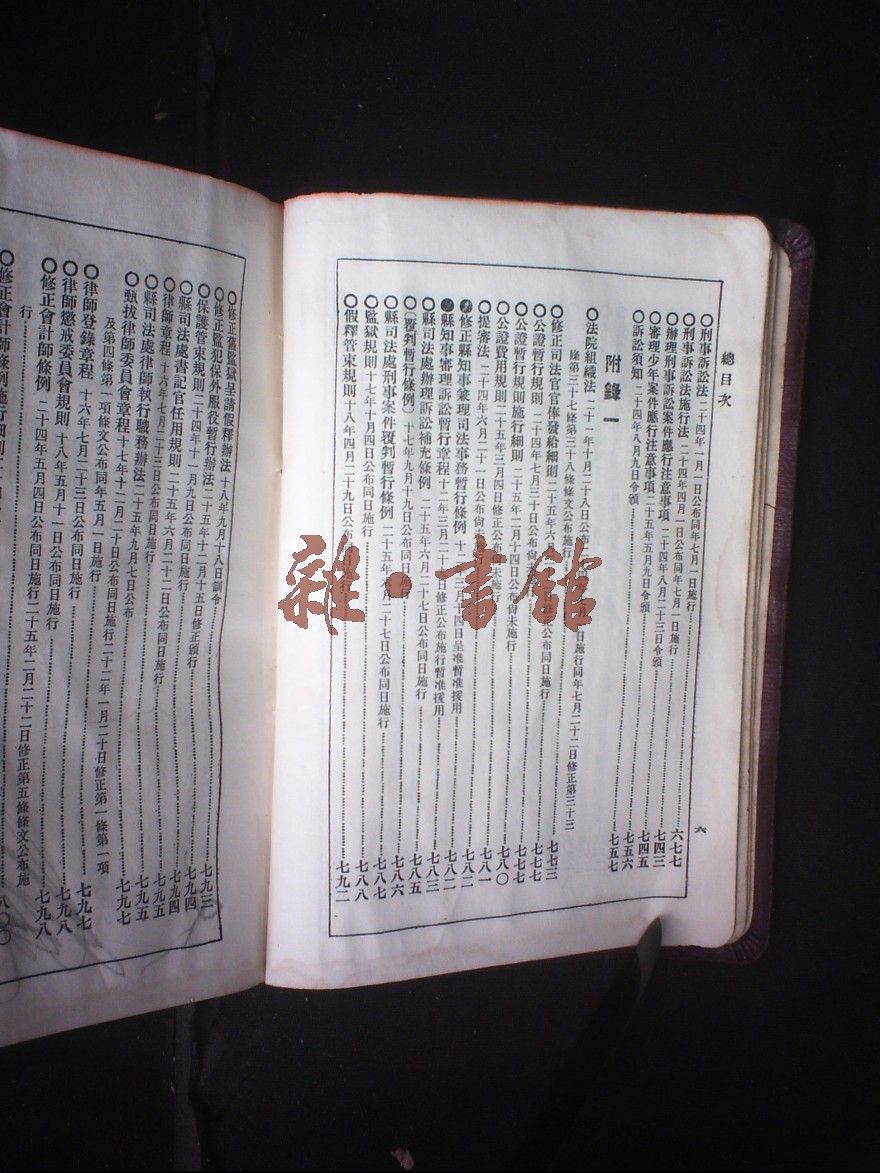 總目次
六
○刑事訴訟法 二十四年一月一日公布同年七月一日施行……六七七
○刑事訴訟法施行法 二十四年四月一日公布同年七月一日施行……七四三
○辦理刑事訴訟案件應行注意事項 二十四年八月二十三日令頒……七四五
○審理少年案件應行注意事項 二十五年五月九日令頒……七五六
○訴訟須知 二十四年八月九日令頒……七五七
附錄一
○法院組織法 二十一年十月二十八日公布 月一日施行同年七月二十二日修正第三十三
條第三十七條第三十八條條文公布施行
○修正司法官官俸發給細則 二十五年六月 修正公布同日施行……七七三
○公證暫行規則 二十四年七月三十日公布尚未……七七七
○公證暫行規則施行細則 二十五年二月十四日公布尚未施行……七七七
○公證費用規則 二十五年三月四日公布尚未施行……七八〇
○提審法 二十四年六月二十一日公布尚未……七八一
修正縣知事兼理司法事務暫行條例 十 三月二十四日呈准暫准援用……七八二
縣知事審理訴訟暫行章程 十二年三月二十 日修正公布施行暫准援用……七八二
○縣司法處辦理訴訟補充條例 二十五年六月二十七日公布同日施行……七八三
○〔覆判暫行條例〕 十七年九月十九日公布同日……七八五
○縣司法處刑事案件覆判暫行條例 二十五年六月二十七日公布同日施行……七八六
○監獄規則 十七年十月四日公布同日施行……七八七
○假釋管束規則 十八年四月二十九日公布同日施行……七八八
七九二
○修正舊監獄呈請假釋辦法 十八年九月十八日訓令
○修正監犯保外服役暫行辦法 二十五年十二月十五日修正頒行……七九三
○保護管束規則 二十四年十一月九日公布同日施行……七九四
○縣司法處書記官任用規則 二十五年六月二十二日公布同日施行……七九四
○律師章程 十六年七月二十三日公布同日施行……七九五
○縣司法處律師執行職務辦法 二十五年九月七日公布……七九五
○甄拔律師委員會章程 十七年十一月二十日公布同日施行二十二年一月二十日修正第一條第一項
及第四條第一項條文公布同年五月一日施行……七九七
○律師登錄章程 十六年七月二十三日公布同日施行……七九七
○律師懲戒委員會規則 十八年五月十一日公布同日施行……七九八
○修正會計師條例 二十四年五月四日公布同日施行二十五年二月二十二日修正第五條條文公布施
行……七九八
○修正會計師條例施行細則……八〇〇
雜·書館